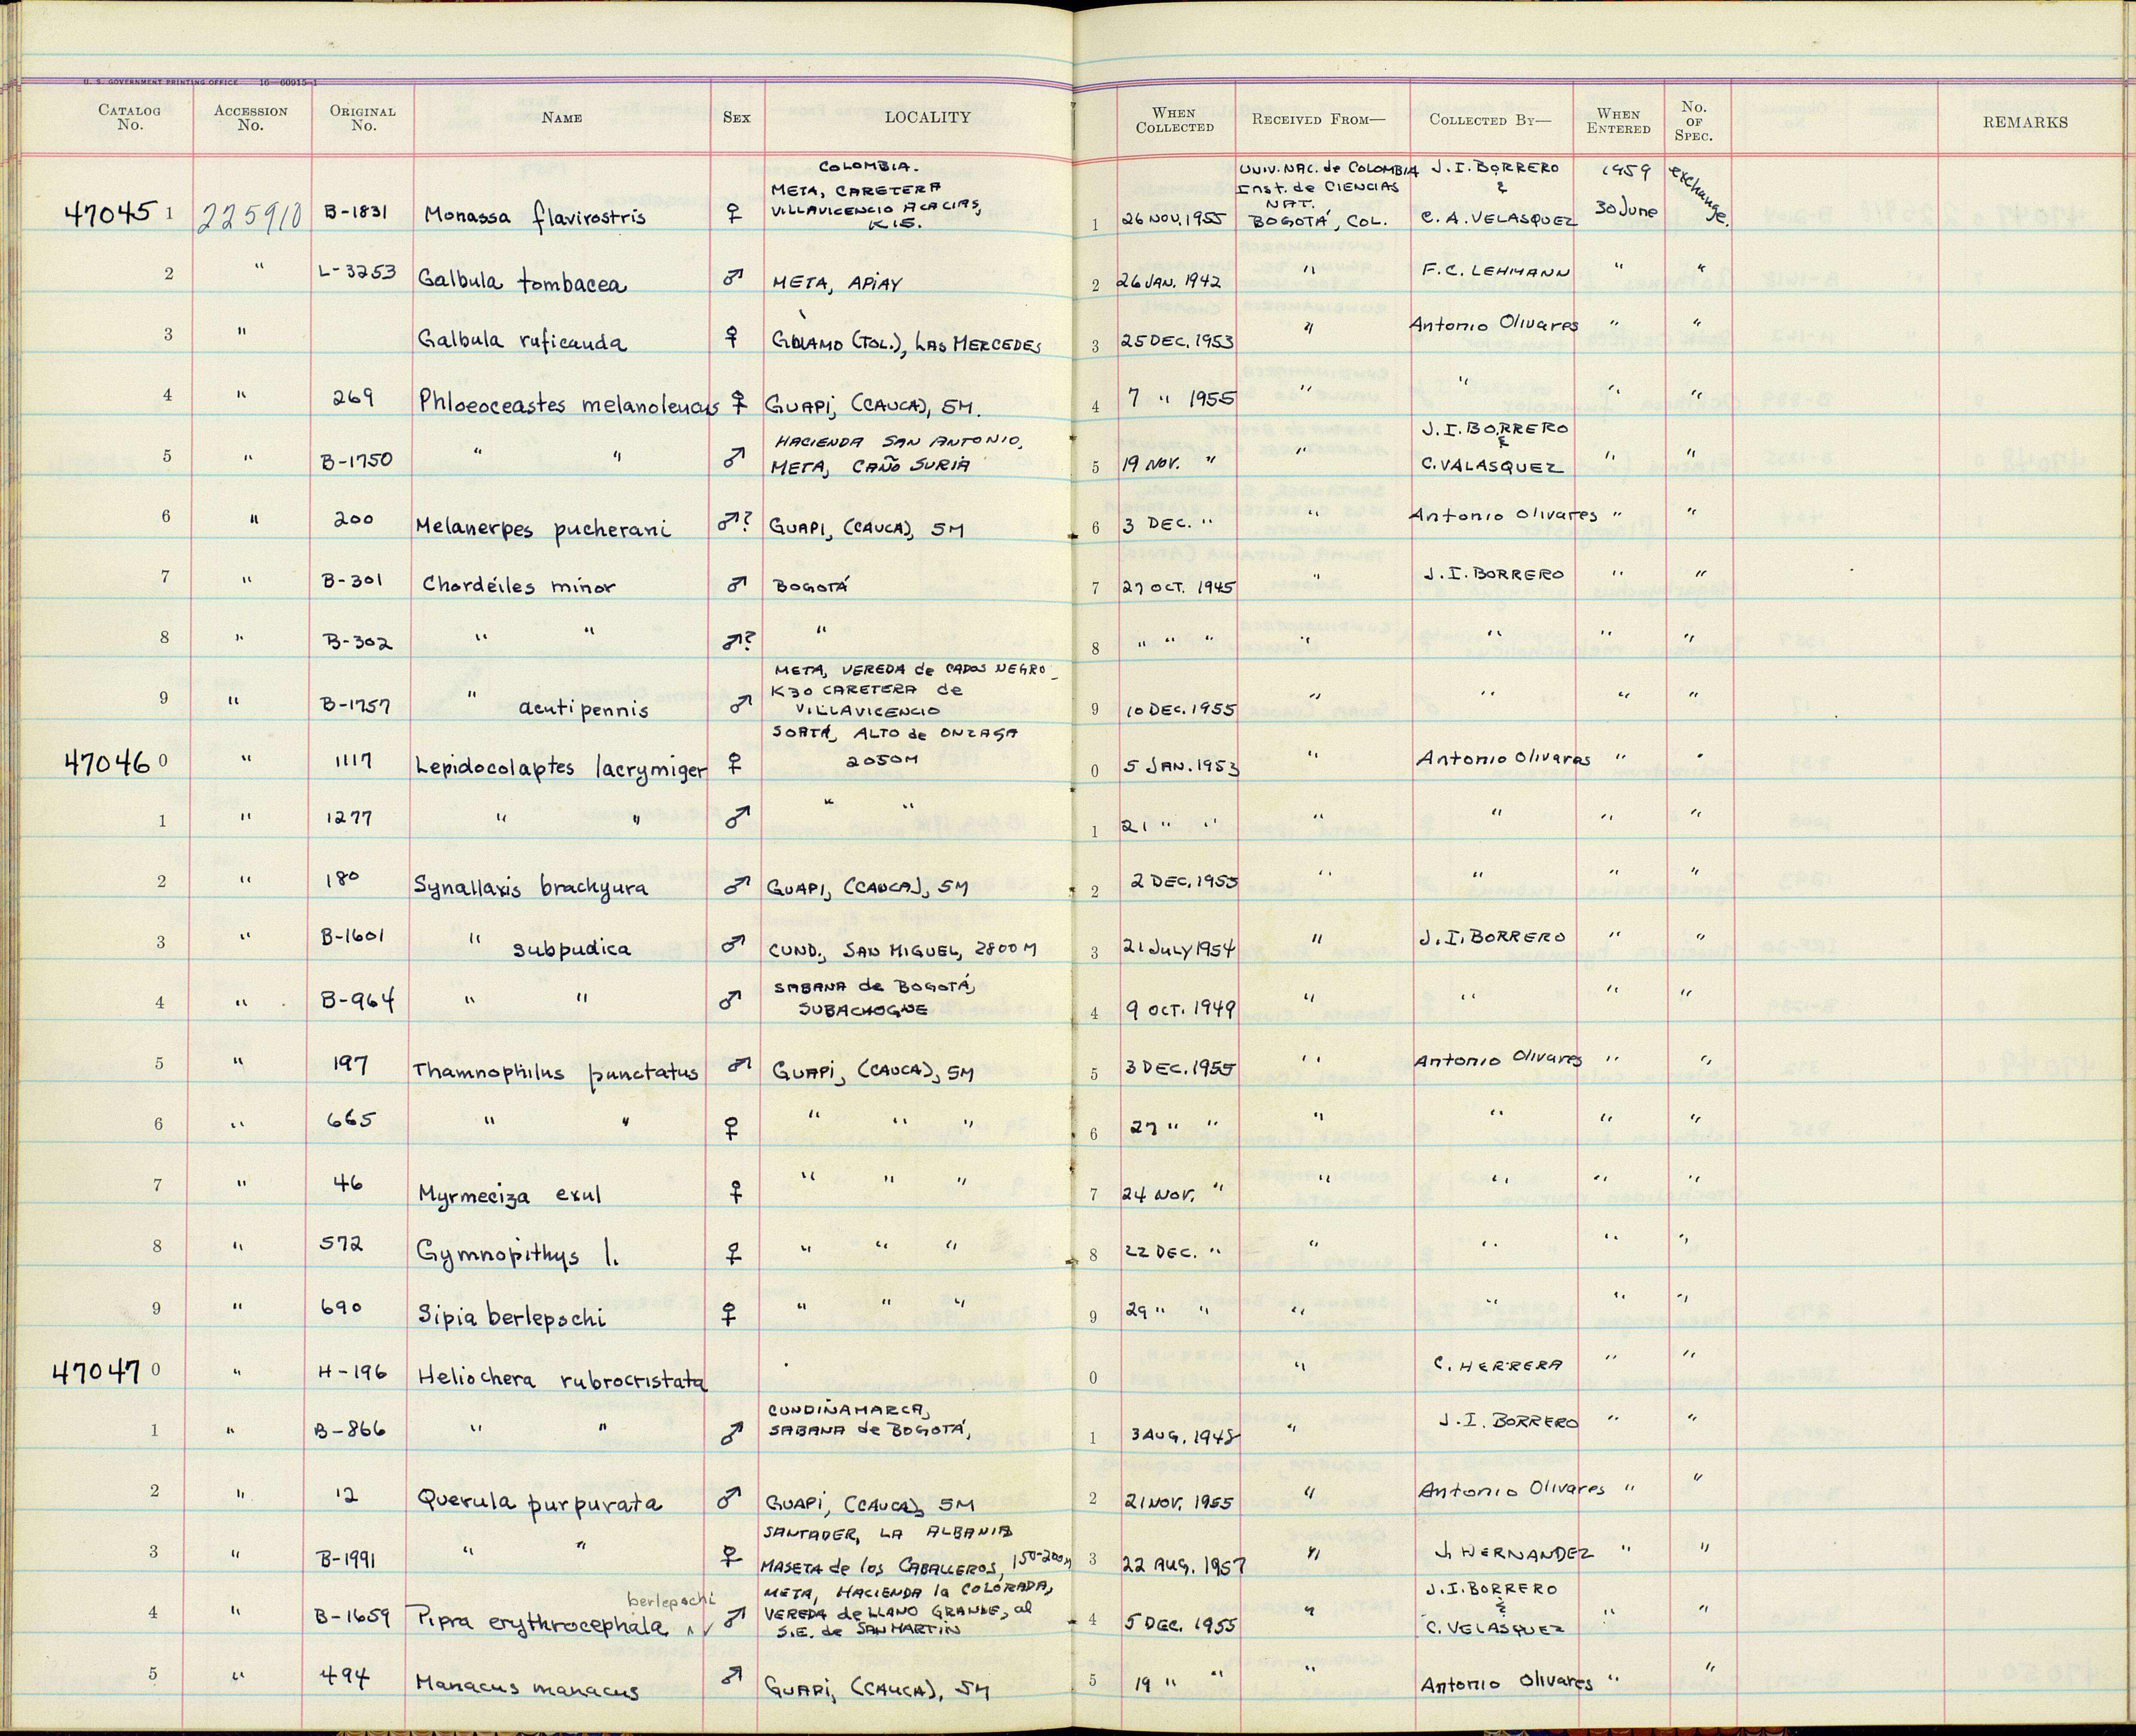 U. S. GOVERNMENT PRINTING OFFICE 16—60915-1
CATALOG No. ACCESSION No. ORIGINAL No. NAME SEX LOCALITY WHEN COLLECTED RECEIVED FROM— COLLECTED BY— WHEN ENTERED No. OF SPEC. REMARKS
COLOMBIA. UNIV. NAC. de COLOMBIA J. I. BORRERO 1959 exchange.
META, CARETERA Inst. de CIENCIAS &
VILLAVICENCIO ACACIAS, NAT.
47045 1 225910 B-1831 Monassa flavirostris ♀ K15. 1 26 NOV. 1955 BOGOTÁ, COL. C. A. VELASQUEZ 30 June
2 " L-3253 Galbula tombacea ♂ META, APIAY 2 26 JAN. 1942 " F. C. LEHMANN " "
3 " Galbula ruficauda ♀ (TOL.), LAS MERCEDES 3 25 DEC. 1953 " Antonio Olivares " "
4 " 269 Phloeoceastes melanoleucus ♀ GUAPI, (CAUCA), 5M. 4 7 " 1955 " " " "
HACIENDA SAN ANTONIO, J. I. BORRERO &
5 " B-1750 " " ♂ META, CAÑO SURIA 5 19 NOV. " " C. VALASQUEZ " "
6 " 200 Melanerpes pucherani ♂? GUAPI, (CAUCA), 5M 6 3 DEC. " " Antonio Olivares " "
7 " B-301 Chordeiles minor ♂ BOGOTÁ 7 27 OCT. 1945 " J. I. BORRERO " "
8 " B-302 " " ♂? " 8 " " " " " " "
META, VEREDA de CAÑOS NEGRO
K30 CARETERA de
9 " B-1757 " acutipennis ♂ VILLAVICENCIO 9 10 DEC. 1955 " " " "
SOATÁ, ALTO de ONZAGA
47046 0 " 1117 Lepidocolaptes lacrymiger ♀ 2050M 0 5 JAN. 1953 " Antonio Olivares " "
1 " 1277 " " ♂ " " 1 21 " " " " " "
2 " 180 Synallaxis brachyura ♂ GUAPI, (CAUCA), 5M 2 2 DEC. 1955 " " " "
3 " B-1601 " subpudica ♂ CUND., SAN MIGUEL, 2800M 3 21 JULY 1954 " J. I. BORRERO " "
SABANA de BOGOTÁ,
4 " B-964 " " ♂ SUBACHOQUE 4 9 OCT. 1949 " " " "
5 " 197 Thamnophilus punctatus ♂ GUAPI, (CAUCA), 5M 5 3 DEC. 1955 " Antonio Olivares " "
6 " 665 " " ♀ " " " 6 27 " " " " " "
7 " 46 Myrmeciza exul ♀ " " " 7 24 NOV. " " " " "
8 " 572 Gymnopithys l. ♀ " " " 8 22 DEC. " " " " "
9 " 690 Sipia berlepschi ♀ " " " 9 29 " " " " " "
47047 0 " H-196 Heliochera rubrocristata 0 " C. HERRERA " "
CUNDINAMARCA,
1 " B-866 " " ♂ SABANA de BOGOTÁ, 1 3 AUG. 1948 " J. I. BORRERO " "
2 " 12 Querula purpurata ♂ GUAPI, (CAUCA), 5M 2 21 NOV. 1955 " Antonio Olivares " "
SANTADER, LA ALBANIA
3 " B-1991 " " ♀ MASETA de los CABALLEROS, 150-200M 3 22 AUG. 1957 " J. HERNANDEZ " "
berlepschi META, HACIENDA la COLORADA, J. I. BORRERO
4 " B-1659 Pipra erythrocephala ^ ✓ ♂ VEREDA de LLANO GRANDE, al 4 5 DEC. 1955 " & " "
S.E. de SAN MARTIN C. VELASQUEZ
5 " 494 Manacus manacus ♂ GUAPI, (CAUCA), 5M 5 19 " " " Antonio Olivares " "